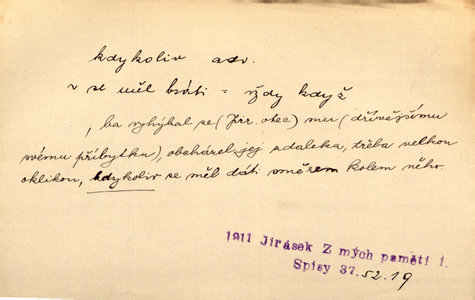 kdykoliv adv.
v se měl bráti = vždy když
, ba vyhýbal se (Jir. otec) mu (dřívějšímu
svému příbytku), obcházel jej zdaleka, třeba velkou
oklikou, kdykoliv se měl dáti směrem kolem něho.
1911 Jirásek Z mých pamětí 1.
Spisy 37. 52.19